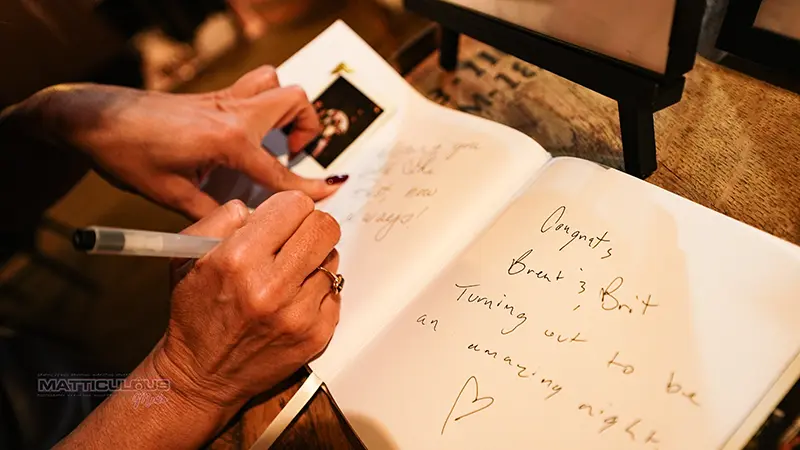 you
now
always!
Congrats
Brent & Brit
Turning out to be
an amazing night
11
M-18
MATTICULOUS